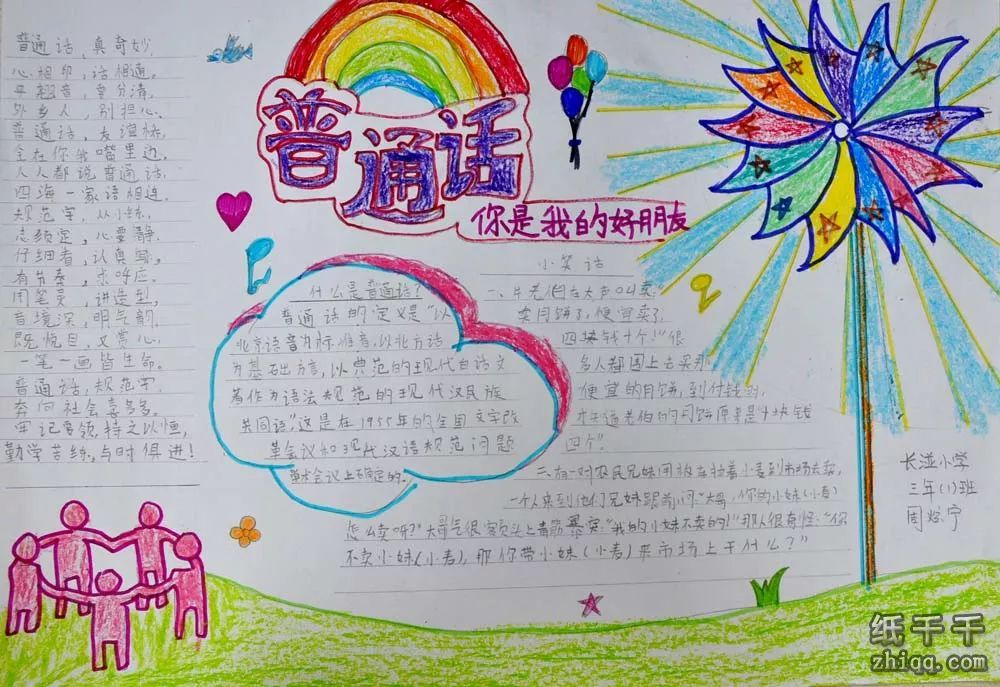 普通话
你是我的好朋友
普通话，真奇妙，
心相印，话相通。
平翘音，要分清，
外乡人，别担心。
普通话，友谊桥，
全在你我嘴里边，
人人都说普通话，
四海一家语相连。
规范字，从小练，
志须定，心要静。
仔细看，认真写，
有节奏，求呼应。
用笔灵，讲造型，
音境深，明气韵。
既悦目，又赏心，
一笔一画皆生命。
普通话，规范字，
奔向社会喜多多。
牢记要领，持之以恒，
勤学苦练，与时俱进！
什么是普通话？
普通话的定义是“以
北京语音为标准音，以北方话
为基础方言，以典范的现代白话文
著作为语法规范的现代汉民族
共同语”这是在1955年的全国文字改
革会议和现代汉语规范问题
学术会议上确定的。
小笑话
一、片老伯在大声叫卖：“
卖月饼了，便宜卖了，
四块钱十个！”很
多人都围上去买那
便宜的月饼，到付钱时，
才知道老伯的月饼原来是十块钱
四个”
二、有一对农民兄妹用被包拉着小麦到市场去卖，
一个人来到他们兄妹跟前问：“大哥，你的小妹（小麦）
怎么卖呀？”大哥气很，额头上青筋暴突：“我的小妹不卖的！”那人很奇怪：“你
不卖小妹（小麦），那你带小妹（小麦）来市场上干什么？”
长湴小学
三年（1）班
周
宁
纸千千
zhiqq.com